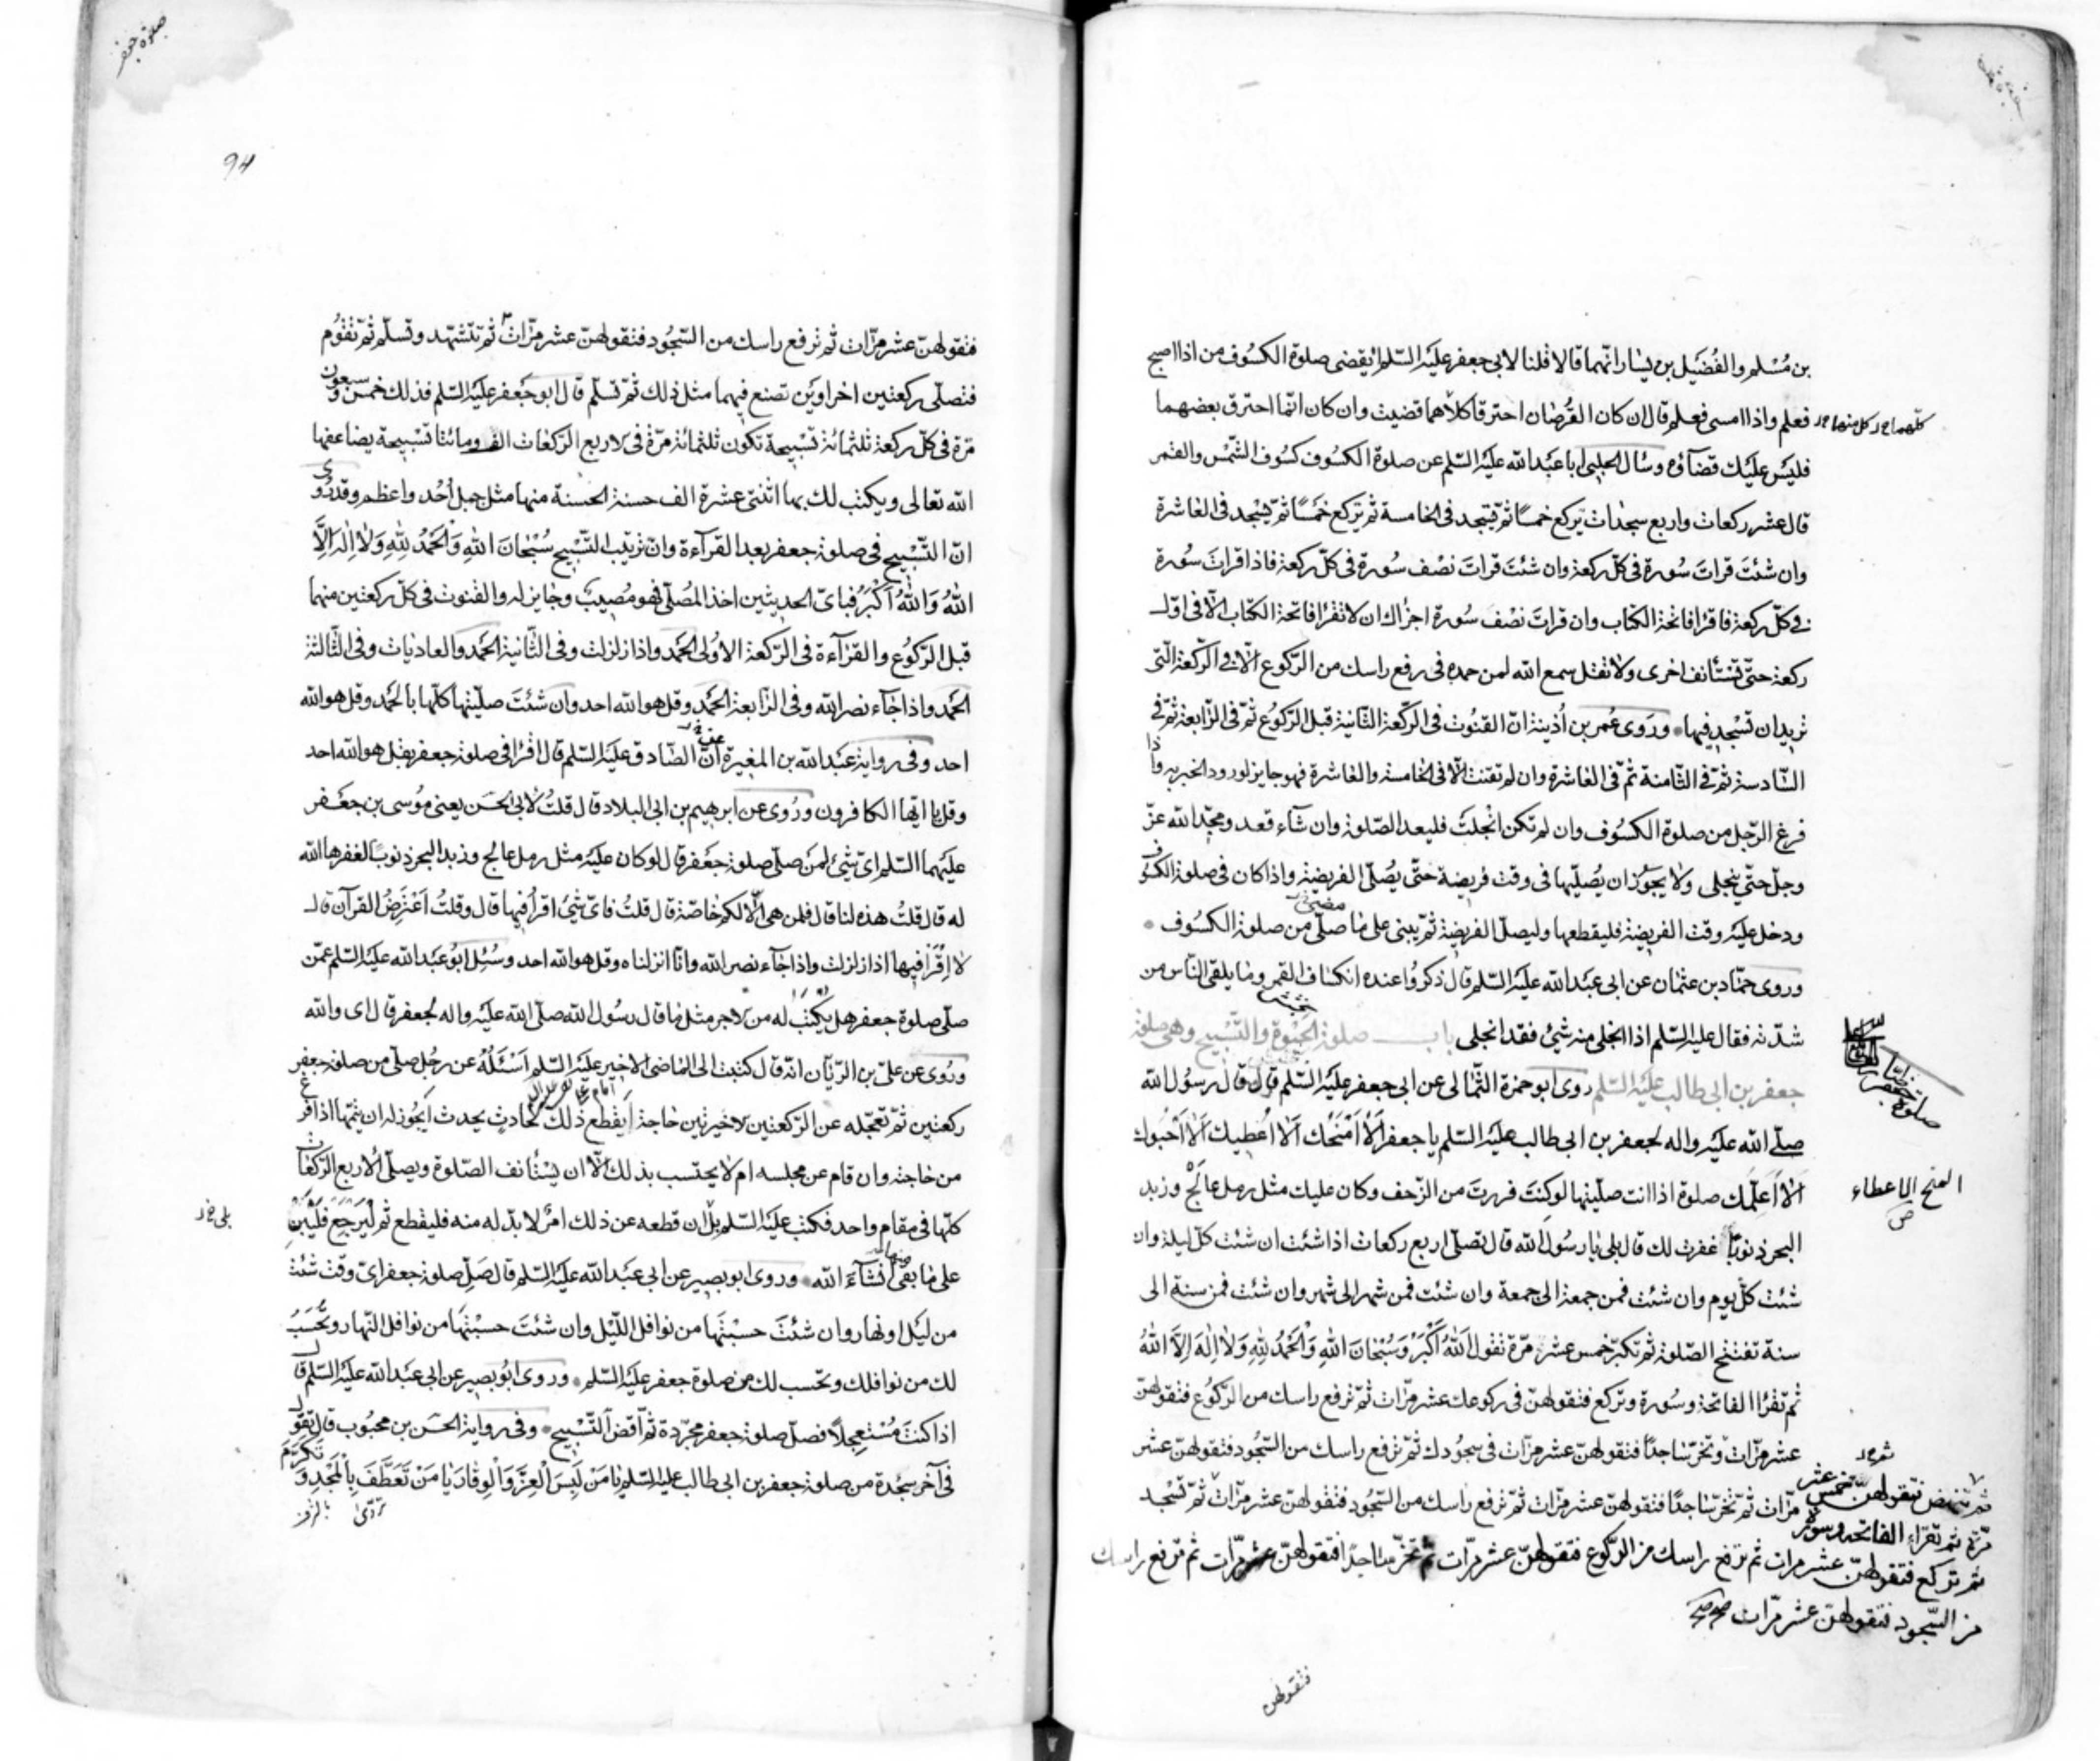 بن مُسْلم والفُضَيل بن يسار انّهما قالا قلنا لابى جعفر عليه السّلم ايقضى صلوة الكسُوف من اذا اصبح
فعلم واذا امسى فعلم قال ان كان القُرصان احترقا كلاهما قضيت وان كان انّما احترق بعضهما
فليس عليك قضآؤه وسأل الحلبى ابا عبد الله عليه السّلم عن صلوة الكسوف كسوف الشّمس والقمر
قال عشر ركعات واربع سجدات يركع خمسًا ثمّ يسجد فى الخامسة ثم يركع خمسًا ثمّ يسجد فى العاشرة
وان شئتَ قراتَ سُورة فى كلّ ركعة وان شئتَ قراتَ نصْف سُورة فى كلّ ركعة فاذا قراتَ سُورة
فى كلّ ركعة فاقرا فاتحة الكتاب وان قرات نصْفَ سُورة اجزأك ان لا تقرا فاتحة الكتاب الّا فى اوّل
ركعة حتّى تستأنف اخرى ولا تقل سمع الله لمن حمده فى رفع راسك من الرّكوع الّا فى الرّكعة الّتى
تريد ان تسْجد فيها وروى عُمر بن اُذينة انّ القنُوت فى الرّكعة الثّانية قبل الرّكوُع ثمّ فى الرّابعة ثمّ فى
السّادسة ثمّ فى الثّامنة ثمّ فى العاشرة وان لم تقنت الّا فى الخامسة والعاشرة فهو جايز لورود الخبر به واذا
فرغ الرّجل من صلوة الكسُوف وان لم تكن انجلَت فليعد الصّلوة وان شآء قعد ومجّد الله عزّ
وجلّ حتّى ينجلى ولا يجوُز ان يُصلّيها فى وقت فريضة حتّى يُصلّى الفريضة واذا كان فى صلوة الكسُوف
ودخل عليه وقت الفريضة فليقطعها وليصلّ الفريضة ثمّ يبنى على ما صلّى من صلوة الكسُوف
وروى حمّاد بن عثمان عن ابى عبد الله عليه السّلم قال ذكروُا عنده انكساف القمر وما يلقى النّاس من
شدّته فقال عليه السّلم اذا انجلى منه شئ فقد انجلى باب صلوة الحَبْوة والتّسْبيح وهى صلوة
جعفر بن ابى طالب عليه السّلم روى ابو حمزة الثّمالى عن ابى جعفر عليه السّلم قال قال رسُول الله
صلّى الله عليه واله لجعفر بن ابى طالب عليه السّلم يا جعفر اَلا اَمْنَحُك اَلا اُعْطيك اَلا اَحْبُوك
اَلا اُعَلّمك صلوة اذا انت صلّيتها لو كنتَ فررتَ من الزّحف وكان عليك مثل رمل عالج وزبد
البحر ذنوبًا غفرت لك قال بلى يا رسُول الله قال تصلّى اربع ركعات اذا شئت ان شئت كلّ ليلة وان
شئت كلّ يوم وان شئت فمن جمعة الى جمعة وان شئت فمن شهر الى شهر وان شئت فمن سنة الى
سنة تفتتح الصّلوة ثم تكبّر خمس عشرة مرّة تقول اَللهُ اَكْبَرُ وَسُبْحَانَ اللهِ وَالْحَمْدُ لِلّهِ وَلا اِلهَ اِلّا اللهُ
ثم تقرا الفاتحة وسُورة وتركع فتقولهنّ فى ركوعك عشر مرّات ثمّ ترفع راسك من الرّكوُع فتقولهنّ
عشر مرّات وتخرّ ساجدًا فتقولهنّ عشر مرّات فى سجُودك ثمّ ترفع راسك من السّجُود فتقولهنّ عشر
مرّات ثمّ تخرّ ساجدًا فتقولهنّ عشر مرّات ثمّ ترفع راسك من السّجُود فتقولهنّ عشر مرّات ثمّ تسْجد
كلّهما خ ر كل منهما خ ر
مضى
المنح الاعطاء
ص
ثم تنهض فتقولهنّ خمس عشر
مرّة ثم تقراء الفاتحه وسورة
ثم تركع فتقولهنّ عشر مرات ثم ترفع راسك من الركوع فتقولهنّ عشر مرّات ثم تخرّ ساجدًا فتقولهنّ عشر مرّات ثم ترفع راسك
من السّجود فتقولهنّ عشر مرّات صح
فتقولهن
صلوة جعفر
94
فتقولهنّ عشر مرّات ثم ترفع راسك من السّجُود فتقولهنّ عشر مرّات ثمّ تتشهّد وتسلّم ثمّ تقوُم
فتصلّى ركعتين اخراوين تصنع فيهما مثل ذلك ثمّ تسلّم قال ابو جعفر عليه السّلم فذلك خمس وسبعون
مرّة فى كلّ ركعة ثلثمائة تسْبيحة تكون ثلثمائة مرّة فى الاربع الرّكعات الف ومائتا تسْبيحة يضاعفها
الله تعالى ويكتب لك بها اثنتى عشرة الف حسنة الحسنة منها مثل جبل اُحُد واعظم وقد رُوى
انّ التّسْبيح فى صلوة جعفر بعد القرآءة وانّ ترتيب التّسْبيح سُبْحانَ اللهِ وَالْحَمْدُ لِلّهِ وَلا اِلهَ اِلَّا
اللهُ وَاللهُ اَكْبَرُ فباىّ الحديثين اخذ المصلّى فهو مُصيب وجايز له والقنوت فى كلّ ركعتين منهما
قبل الرّكوُع والقرآءة فى الرّكعة الاوُلى الحمَد واذا زلزلت وفى الثّانية الحمَد والعاديات وفى الثّالثة
الحمَد واذا جآء نصر الله وفى الرّابعة الحمَد وقل هو الله احد وان شئتَ صلّيتها كلّها بالحَمد وقل هو الله
احد وفى رواية عبَد الله بن المغيرة انّ الصّادق عليه السّلم قال اقرا فى صلوة جعفر بقل هو الله احد
وقل يا ايّها الكافرون ورُوى عن ابرهيم بن ابى البلاد قال قلتُ لابى الحسَن يعنى موُسى بن جعَفر
عليهما السّلم اىّ شئ لمَن صلّى صلوة جعَفر قال لو كان عليه مثل رمل عالج وزبد البحر ذنوبًا لغفرها الله
له قال قلتُ هذه لنا قال فلمن هى الّا لكم خاصّة قال قلتُ فاىّ شئ اقرأُ فيها قال وقلتُ اَعْتَرِضُ القرآن قال
لا اِقْرَأ فيها اذا زلزلت واذا جآء نصر الله وانّا انزلناه وقل هو الله احد وسُئِل ابوُ عبَد الله عليه السّلم عمّن
صلّى صلوة جعفر هل يُكتَب له من الاجر مثل ما قال رسُول الله صلّى الله عليه واله لجعفر قال اى والله
ورُوى عن علىّ بن الرّيّان انّه قال كتبت الى الماضى الاخير عليه السّلم اَسْئَلُهُ عن رجُل صلّى من صلوة جعفر
ركعتين ثمّ تعجّله عن الرّكعتين الاخيرتين حاجة اَيقطع ذلك لحادثٍ يحدث اَيجُوز له ان يتمّها اذا فرغ
من حاجته وان قام عن مجلسه ام لا يحتسب بذلك الّا ان يسْتأنف الصّلوة ويصلّى الاربع الرّكعات
كلّها فى مقام واحد فكتب عليه السّلم بل ان قطعه عن ذلك امرٌ لا بدّ له منه فليقطع ثم لْيَرجِع فَلْيَبْنِ
على ما بقى منها انشآءَ الله وروى ابو بصير عن ابى عبَد الله عليه السّلم قال صَلّ صلوة جعفر اىّ وقت شئتَ
من ليَل او نهار وان شئتَ حسبْتَها من نوافل اللّيْل وان شئتَ حسبْتَها من نوافل النّهار وتُحْسَبُ
لك من نوافلك وتحسب لك من صلوة جعفر عليه السّلم وروى ابوُ بصير عن ابى عبَد الله عليه السّلم قال
اذا كنتَ مُسْتعجلًا فصلّ صلوة جعفر مجرّدة ثمّ اَقض التّسْبيح وفى رواية الحسَن بن محبُوب قال تقول
فى آخر سجْدة من صلوة جعفر بن ابى طالب عليه السّلم يا مَنْ لَبِسَ الْعِزَّ وَالْوِقَارَ يَا مَنْ تَعَطَّفَ بِالْمَجْدِ وَ
تَكَرَّمَ
بلى خ ر